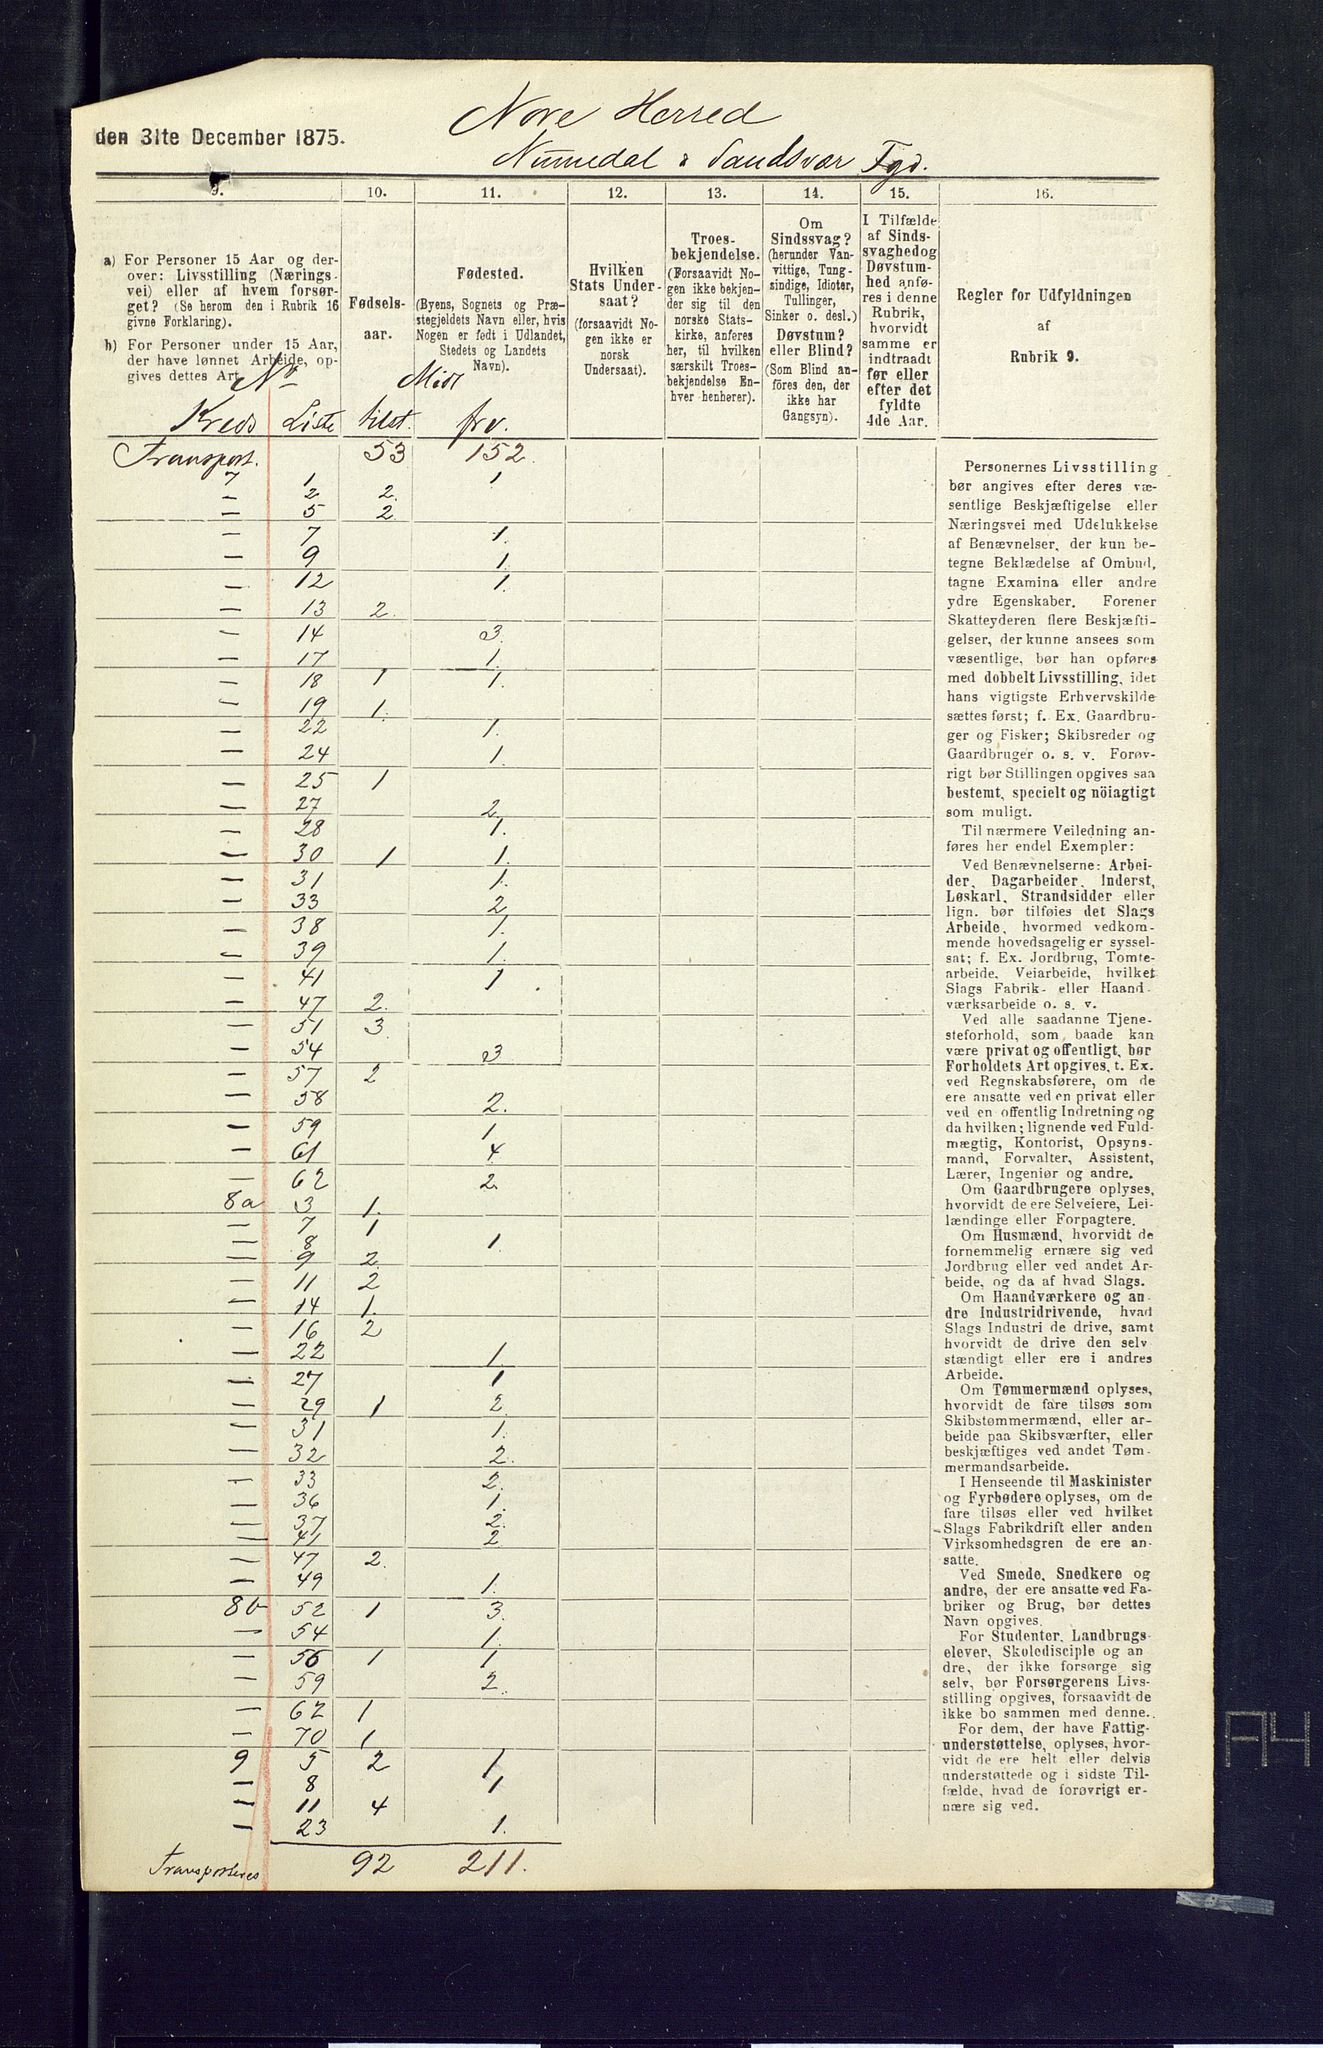 Nore Herred
den 31te December 1875.
Numedal & Sandsvær Fgd.
9.
a) For Personer 15 Aar og derover: Livsstilling (Næringsvei) eller af hvem forsørget? (Se herom den i Rubrik 16 givne Forklaring).
b) For Personer under 15 Aar, der have lønnet Arbeide, opgives dettes Art.
10.
Fødselsaar.
11.
Fødested.
(Byens, Sognets og Præstegjeldets Navn eller, hvis Nogen er født i Udlandet, Stedets og Landets Navn).
12.
Hvilken Stats Undersaat?
(forsaavidt Nogen ikke er norsk Undersaat).
13.
Troesbekjendelse.
(Forsaavidt Nogen ikke bekjender sig til den norske Statskirke, anføres her, til hvilken særskilt Troesbekjendelse Enhver henhører).
14.
Om Sindssvag?
(herunder Vanvittige, Tungsindige, Idioter, Tullinger, Sinker o. desl.)
Døvstum? eller Blind?
(Som Blind anføres den, der ikke har Gangsyn).
15.
I Tilfælde af Sindssvaghed og Døvstumhed anføres i denne Rubrik, hvorvidt samme er indtraadt før eller efter det fyldte 4de Aar.
16.
Regler for Udfyldningen
af
Rubrik 9.
No Midl
Kreds Liste tilst. frv.
Transport. 53 152
7 1 1
— 2 2.
— 5 2
— 7 1.
— 9 1.
— 12 1.
— 13 2.
— 14 3.
— 17 1.
— 18 1 1.
— 19 1.
— 22 1.
— 24 1.
— 25 1
— 27 2
— 28 1.
— 30 1 1.
— 31 1.
— 33 2
— 38 1.
— 39 1.
— 41 1
— 47 2.
— 51 3
— 54 3
— 57 2
— 58 2.
— 59 1
— 61 4
— 62 2.
8a 3 1.
— 7 1
— 8 1.
— 9 2.
— 11 2
— 14 1.
— 16 2
— 22 1.
— 27 1
— 29 1 2.
— 31 1.
— 32 2.
— 33 2.
— 36 1.
— 37 2.
— 41 2
— 47 2.
— 49 1.
8b 52 1 3.
— 54 1.
— 56 1 1
— 59 2.
— 62 1
— 70 1
9 5 2 1
— 8 1
— 11 4
— 23 1.
Transporteres 92 211.
Personernes Livsstilling
bør angives efter deres væ-
sentlige Beskjæftigelse eller
Næringsvei med Udelukkelse
af Benævnelser, der kun be-
tegne Beklædelse af Ombud,
tagne Examina eller andre
ydre Egenskaber. Forener
Skatteyderen flere Beskjæfti-
gelser, der kunne ansees som
væsentlige, bør han opføres
med dobbelt Livsstilling, idet
hans vigtigste Erhvervskilde
sættes først; f. Ex. Gaardbru-
ger og Fisker; Skibsreder og
Gaardbruger o. s. v. Forøv-
rigt bør Stillingen opgives saa
bestemt, specielt og nöiagtigt
som muligt.
Til nærmere Veiledning an-
føres her endel Exempler:
Ved Benævnelserne: Arbei-
der, Dagarbeider, Inderst,
Løskarl, Strandsidder eller
lign. bør tilføies det Slags
Arbeide, hvormed vedkom-
mende hovedsagelig er syssel-
sat; f. Ex. Jordbrug, Tomte-
arbeide, Veiarbeide, hvilket
Slags Fabrik- eller Haand-
værksarbeide o. s. v.
Ved alle saadanne Tjene-
steforhold, som baade kan
være privat og offentligt, bør
Forholdets Art opgives, t. Ex.
ved Regnskabsførere, om de
ere ansatte ved en privat eller
ved en offentlig Indretning og
da hvilken; lignende ved Fuld-
mægtig, Kontorist, Opsyns-
mand, Forvalter, Assistent,
Lærer, Ingeniør og andre.
Om Gaardbrugere oplyses,
hvorvidt de ere Selveiere, Lei-
lændinge eller Forpagtere.
Om Husmænd, hvorvidt de
fornemmelig ernære sig ved
Jordbrug eller ved andet Ar-
beide, og da af hvad Slags.
Om Haandværkere og an-
dre Industridrivende, hvad
Slags Industri de drive, samt
hvorvidt de drive den selv-
stændigt eller ere i andres
Arbeide.
Om Tømmermænd oplyses,
hvorvidt de fare tilsøs som
Skibstømmermænd, eller ar-
beide paa Skibsværfter, eller
beskjæftiges ved andet Tøm-
mermandsarbeide.
I Henseende til Maskinister
og Fyrbødere oplyses, om de
fare tilsøs eller ved hvilket
Slags Fabrikdrift eller anden
Virksomhedsgren de ere an-
satte.
Ved Smede, Snedkere og
andre, der ere ansatte ved Fa-
briker og Brug, bør dettes
Navn opgives.
For Studenter, Landbrugs-
elever, Skoledisciple og an-
dre, der ikke forsørge sig
selv, bør Forsørgerens Livs-
stilling opgives, forsaavidt de
ikke bo sammen med denne.
For dem, der have Fattig-
understøttelse, oplyses, hvor-
vidt de ere helt eller delvis
understøttede og i sidste Til-
fælde, hvad de forøvrigt er-
nære sig ved.
A4